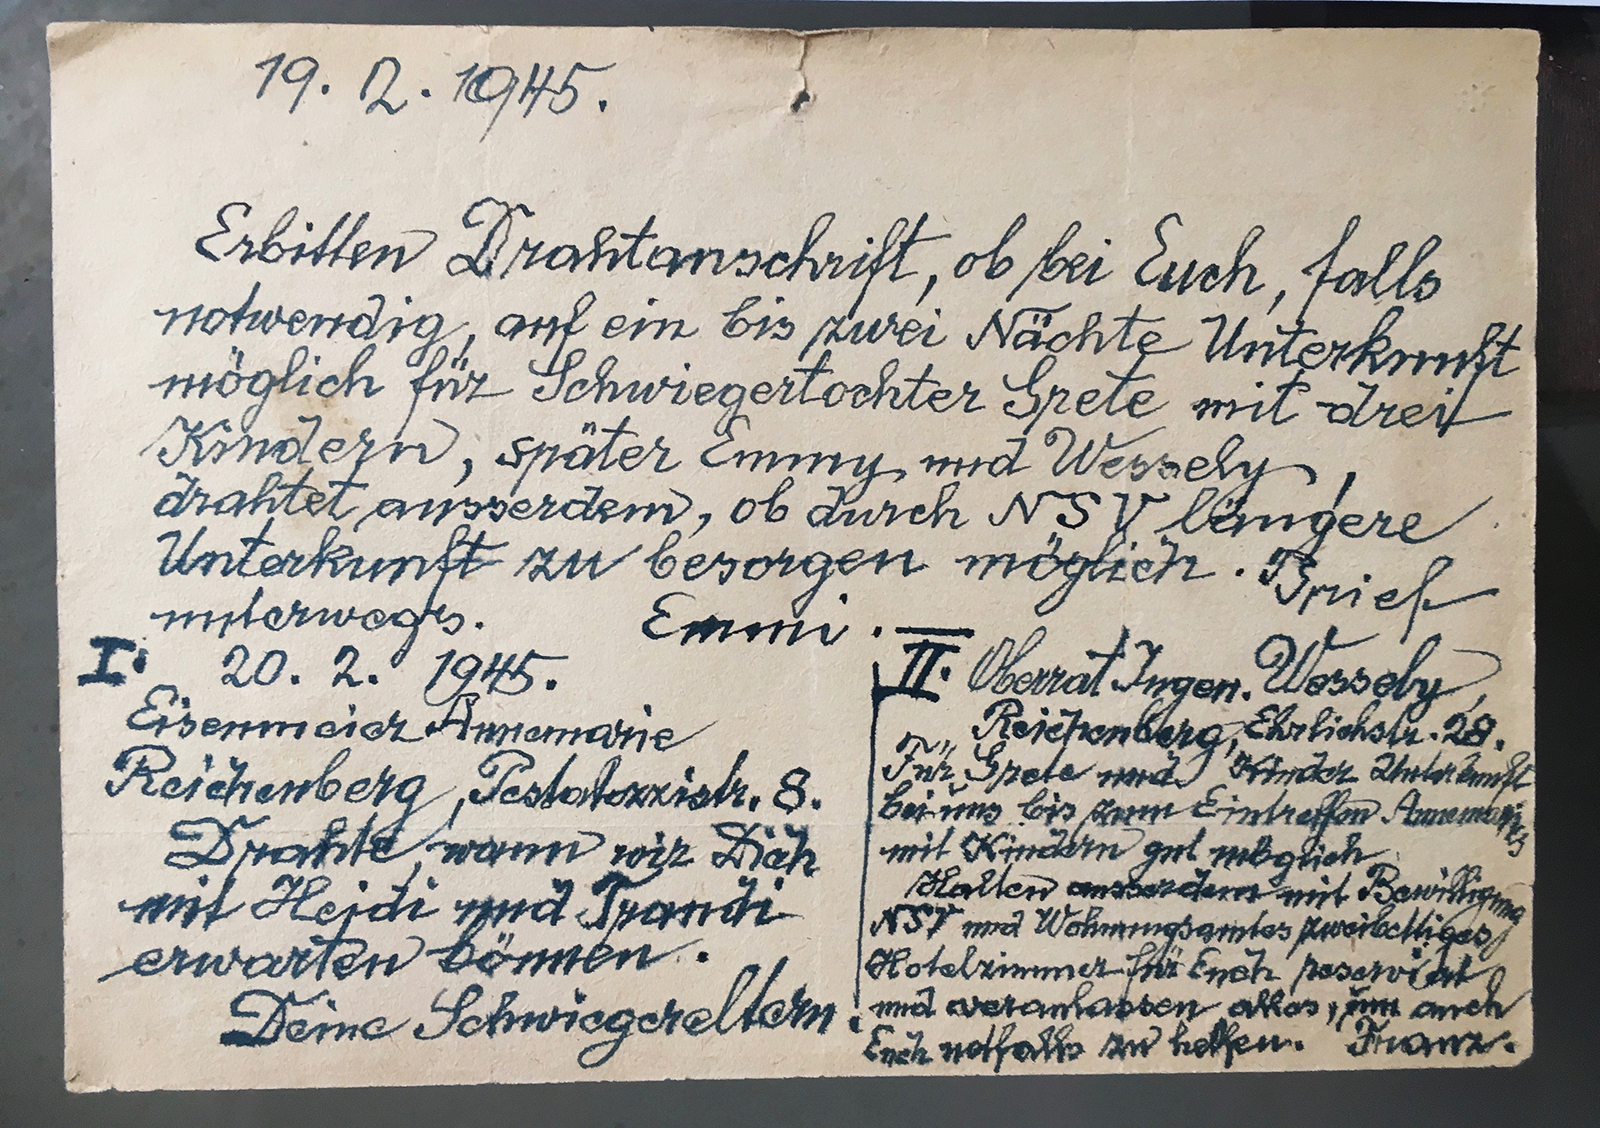 19. 2. 1945.
Erbitten Drahtanschrift, ob bei Euch, falls
notwendig, auf ein bis zwei Nächte Unterkunft
möglich für Schwiegertochter Grete mit drei
Kindern, später Emmy und Wessely,
drahtet ausserdem, ob durch NSV längere
Unterkunft zu besorgen möglich. Brief
unterwegs. Emmi.
I. 20. 2. 1945.
Eisenmeier Annemarie
Reichenberg, Pestalozzistr. 8.
Drahte, wann wir Dich
mit Heidi und Traudi
erwarten können.
Deine Schwiegereltern.
II. Oberrat Ingen. Wessely,
Reichenberg, Ehrlichstr. 28.
Für Grete und Kinder Unterkunft
bei uns bis zum Eintreffen Annemaries
mit Kindern gut möglich
Halten ausserdem mit Bewilligung
NSV und Wohnungsamtes zweibettiges
Hotelzimmer für Euch reserviert
und veranlassen alles, um auch
Euch notfalls zu helfen. Franz.